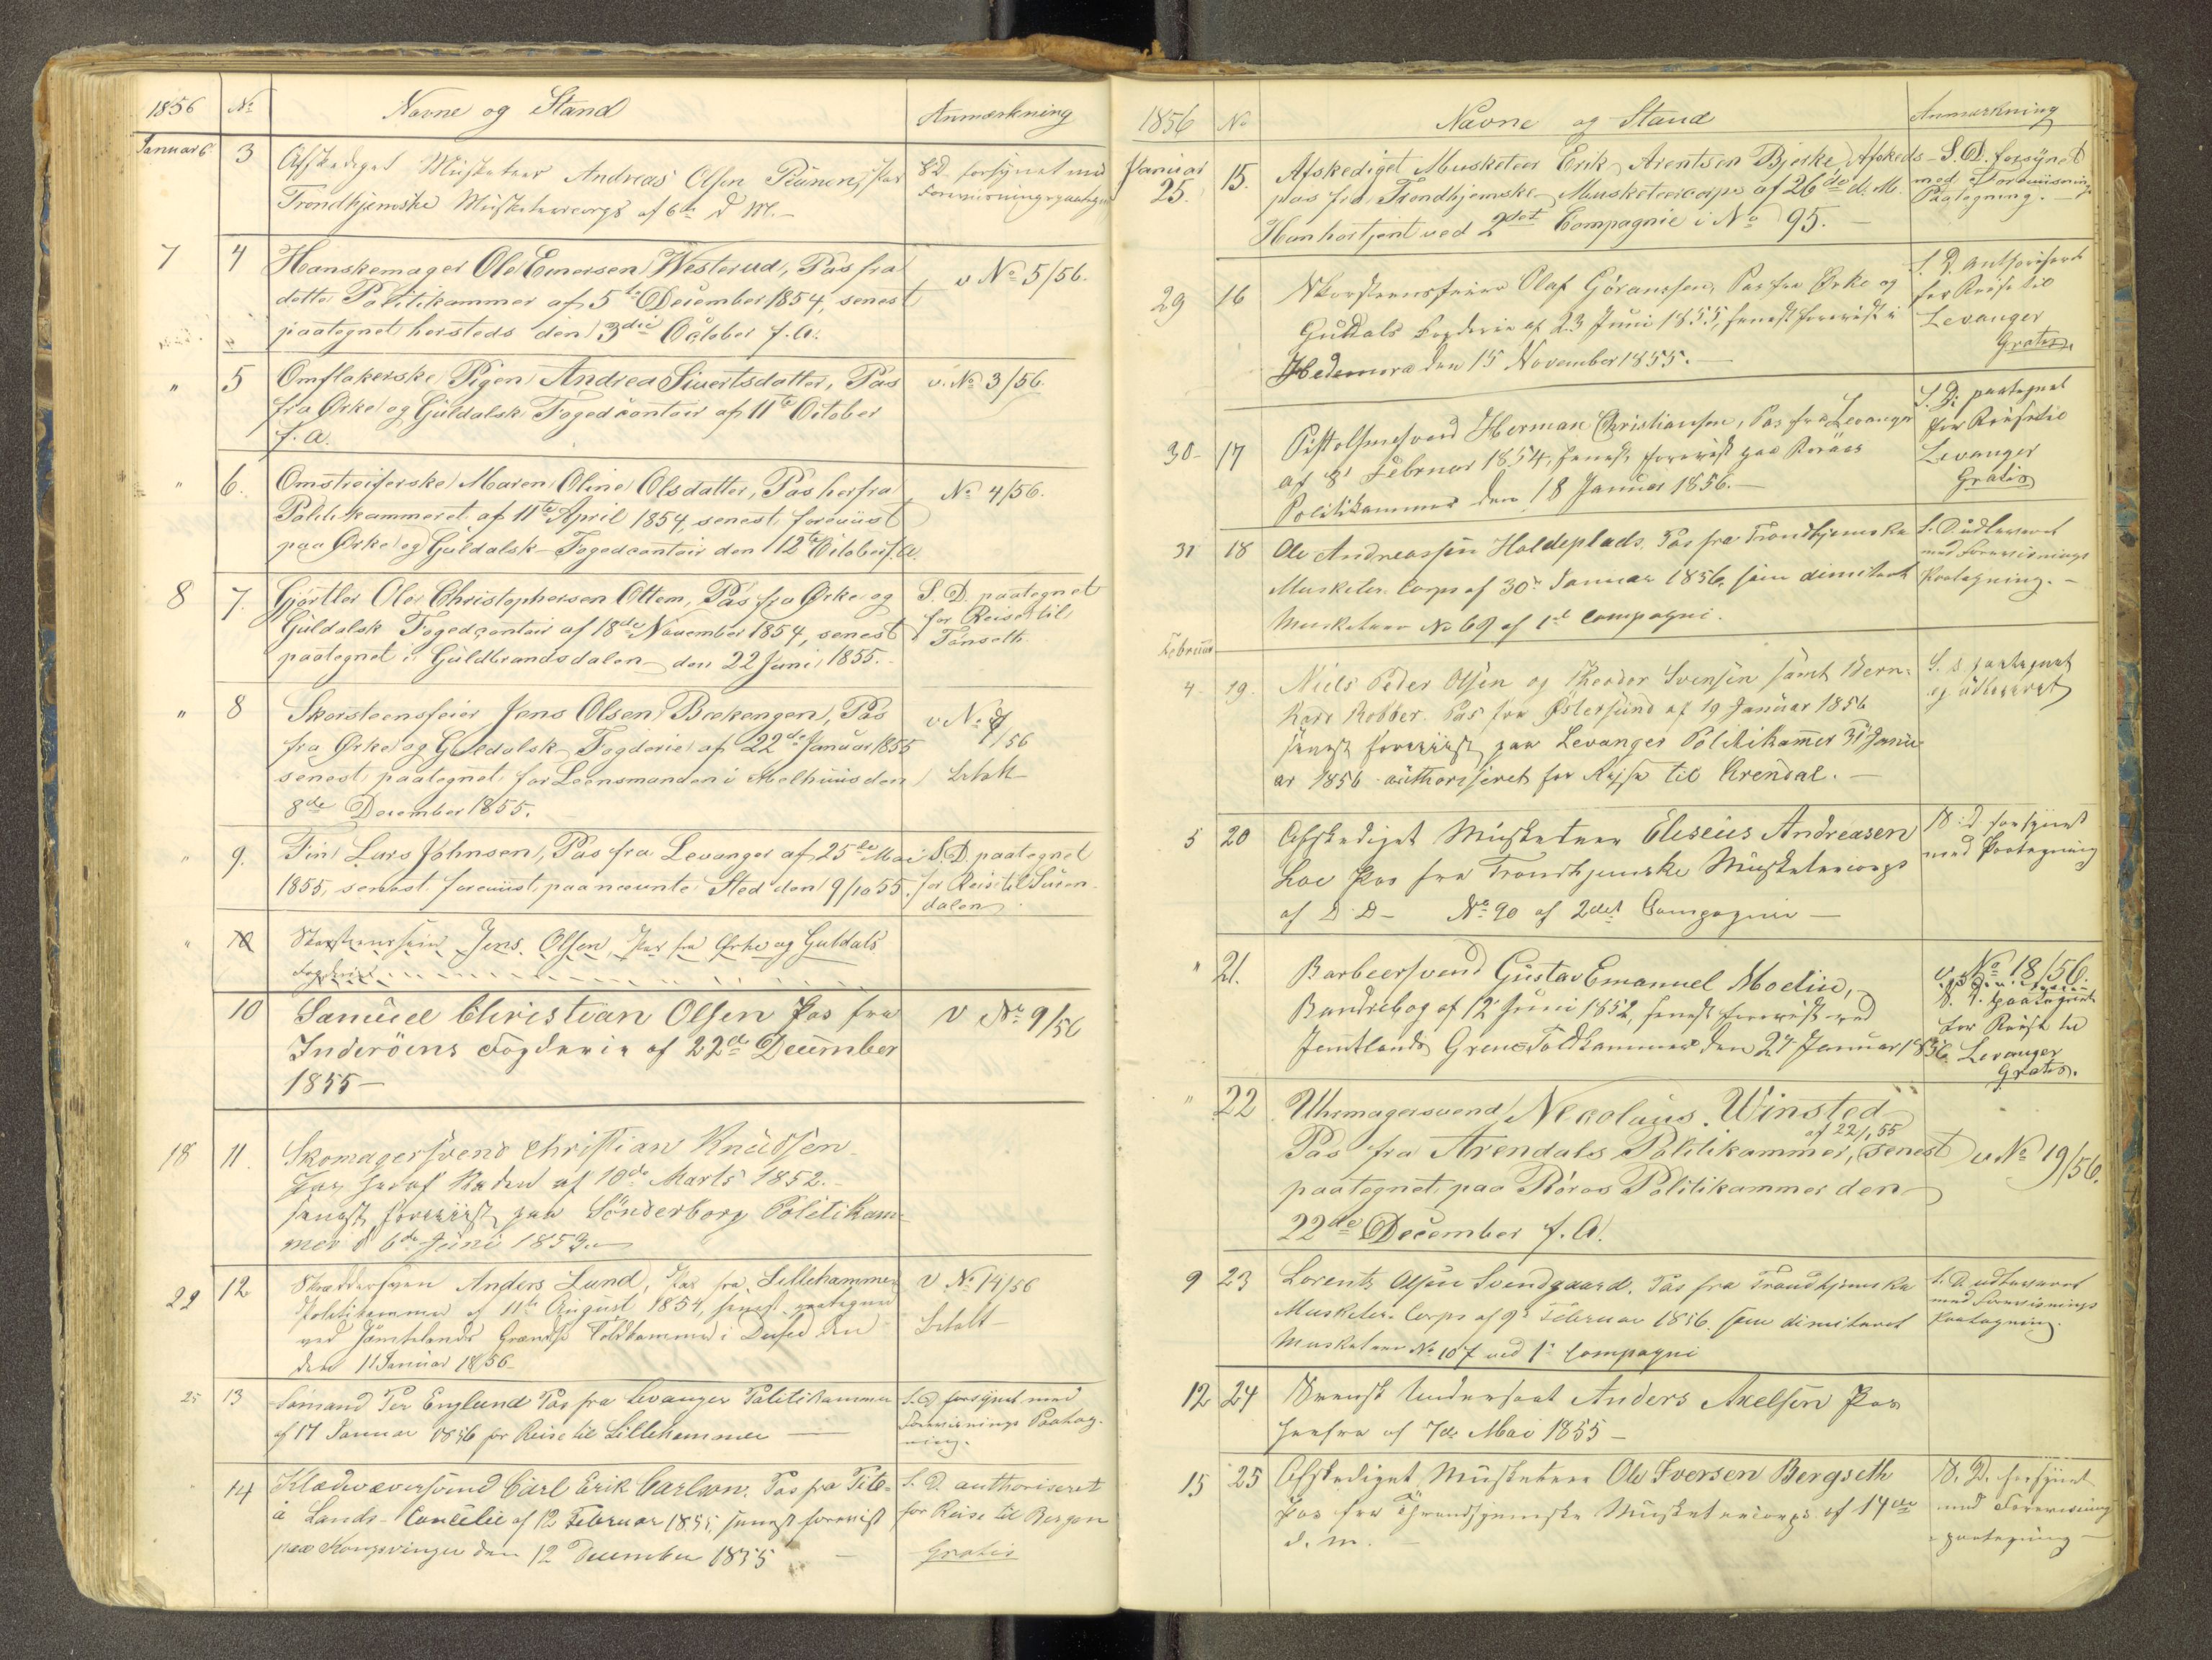 1856 No Navne og Stand Anmærkning
Januar 6 3 Afskediget Musketeer Andreas Olsen Pas SD forsynet med
Trondhjemske Musketeercorps af 6te d. M. - Forevisningspaategn
7 4 Hanskemager Ole Emersen Westerud, Pas fra v No 5/56.
dette Politikammer af 5te December 1854, senest
paategnet hersteds den 3die October f. A.
" 5 Omflakerske Pigen Andrea Sivertsdatter, Pas v. No 3/56.
fra Ørke og Guldalsk Fogedcontoir af 11te October
f. A.
" 6. Omstreiferske Maren Oline Olsdatter, Pas herfra No 4/56.
Politikammeret af 11te April 1854, senest foreviist
paa Ørke og Guldalsk Fogedcontoir den 12te October f. A.
8 7. Gjørtler Ole Christophersen Ottem, Pas fra Ørke og S. D. paategnet
Guldalsk Fogedcontoir af 18de November 1854, senest for Reise til
paategnet i Guldbrandsdalen den 22 Juni 1855. Tønseth
" 8 Skorsteensfeier Jens Olsen Brekengen, Pas v No 7/56
fra Ørke og Guldalsk Fogderie af 22de Januar 1855
senest paategnet for Leensmanden i Melhuus den betalt
8de December 1855.
" 9. Fin Lars Johnsen, Pas fra Levanger af 25de Mai S. D. paategnet
1855, senest foreviist paa nævnte Sted den 9/10 55. for Reise til Suren-
dalen
" 10 Skorsteensfeier Jens Olsen, Pas fra Ørke og Guldals
Fogderie
10 Samuel Christian Olsen Pas fra v No 9/56
Inderöens Fogderie af 22de December
1855 -
18 11. Skomagersvend Christian Knudsen
Pas af 10de Marts 1852.
senest foreviist paa Sönderborg Politikam-
mer d 6de Juni 1853.
22 12 Skræddersven Anders Lund, Pas fra Lillehammer v No 14/56
Politikammer af 11te August 1854, senest paategnet
ved Jämtelands Grændse Toldkammer i Dufed den betalt
den 11 Januar 1856
25 13 Sømand Per Englund Pas fra Levanger Politikammer S. D forsynet med
af 17 Januar 1856 for Reise til Lillehammer Forevisnings Paateg-
ning.
14 Klædevæversvend Carl Erik Carlson. Pas fra Pite- S. D. authoriseret
å Lands-Cancelie af 12 Februar 1855, senest forevist for Reise til Bergen
paa Kongsvinger den 12 December 1855 Gratis
1856 No Navne og Stand Anmærkning
Januar 25. 15. Afskediget Musketeer Erik Arentsen Bjerke Afskeds- S. D. forsynet
pas fra Trondhjemske Musketeercorps af 26de d. M. med Foreviisnings
Han har tjent ved 2det Compagnie i No 95. - Paategning. -
29 16 Skorsteensfeier Olaf Göransson, Pas fra Ørke og S. D. authoriseret
Guldals Fogderie af 23 Juni 1855, senest forevist i for Reise til
Hedemora den 15 November 1855. - Levanger
Gratis
30 - 17 Herman Christiansen, Pas fra Levanger S. D. paategnet
af 8 Februar 1854, senest forevist paa Røraas for Reise til
Politikammer den 18 Januar 1856. - Levanger
Gratis
31 18 Ole Andreassen Haldeplads. Pas fra Trondhjemske S. D. udleveret
Musketer. Corps af 30' Januar 1856, som dimiteret med Forevisnings
Musketeer No 69 af 1ste Compagni. Paategning. -
Februar
4 19. Niels Peder Olsen og Theodor Svensen samt Bern- S. D paategnet
hard Robber. Pas fra Østersund af 19 Januar 1856 og udleveret
senest foreviist paa Levanger Politikammer 31 Janu-
ar 1856 authoriseret for Rejse til Arendal. -
5 20 Afskediget Musketeer Eliseus Andreasen S. D forsynet
Loe Pas fra Trondhjemske Musketeercorps med Paategning
af D. D - No 90 af 2det Compagnie -
" 21. Barbeersvend Gustav Emanuel Modin, v. No 18/56.
Vandrebog af 12 Juni 1852, senest forevist ved S. D. paategnet
Jemtlands Grense Toldkammer den 27 Januar 1856 for Reise til
Levanger
Gratis.
" 22 Uhrmagersvend Nicolaus Winsted
af 22/1 55
Pas fra Arendals Politikammer, senest v No 19/56.
paategnet paa Röros Politikammer den
22de December f. A.
9 23 Lorents Olsen Svendgaard. Pas fra Trondhjemske S. D. udleveret
Musketer. Corps af 9' Februar 1856. som dimiteret med Forevisnings
Musketeer No 107 ved 1' Compagni Paategning.
12 24 Svensk Undersaat Anders Axelsen Pas
herfra af 7de Mai 1855 -
15 25 Afskediget Musketeer Ole Iversen Bergseth S. D. forsynet
Pas fra Throndhjemske Musketeercorps af 14de med Forevisnings
d. M. - paategning -